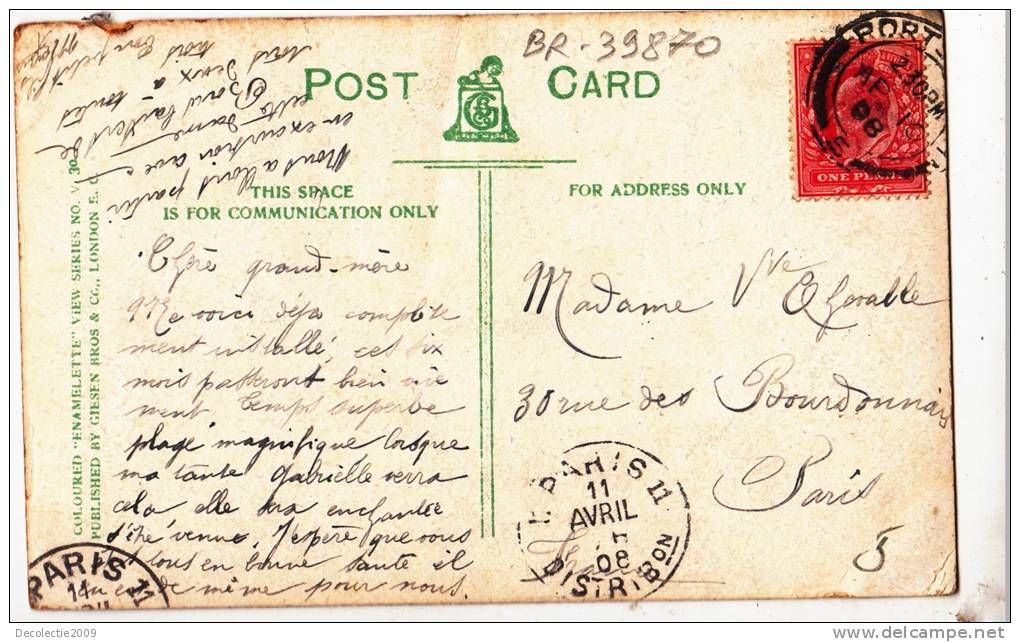 BR-39870
POST CARD
THIS SPACE
IS FOR COMMUNICATION ONLY
FOR ADDRESS ONLY
ONE PE
PORT-
2.30PM
AP 10
08
COLOURED "ENAMELETTE" VIEW SERIES NO. V. 30
PUBLISHED BY GIESEN BROS & CO., LONDON E. C.
Nous allons partir
en excursion avec
cette dame
tous deux à
trois
Chère grand-mère
Me voici déjà complète
ment installé, ces six
mois passeront bien vive
ment. Temps superbe
plage magnifique lorsque
ma tante Gabrielle verra
cela elle sera enchantée
d'être venue. J'espère que vous
tous en bonne santé il
en est de même pour nous.
Madame Vve Chevalle
30 rue des Bourdonnais
Paris
5
PARIS 11
11
AVRIL
08
DISTRIBON
PARIS 11
Decolectie2009
www.delcampe.net